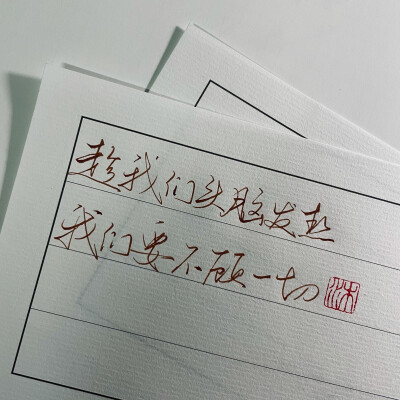 趁我们头脑发热
我们要不顾一切